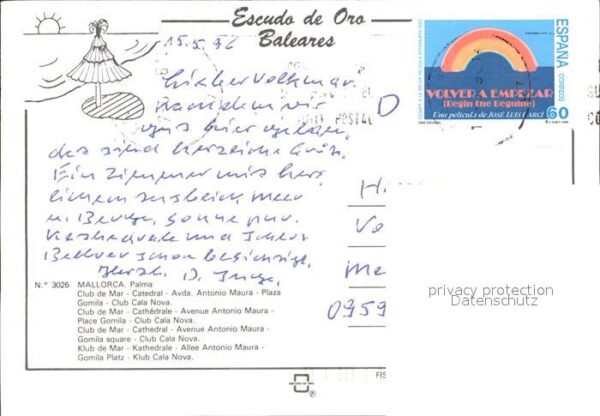 Escudo de Oro
Baleares
15.5.96
Lieber Volkmar
nachdem wir
uns hier
das sind herzliche Grüße.
Ein Zimmer mit herr-
lichem Ausblick Meer
u. Berge, Sonne pur.
Kathedrale und
Bellver schon besichtigt.
Herzl. D. Inge.
D
POSTAL
ESPAÑA
CORREOS
VOLVER A EMPEZAR
(Begin the Beguine)
Una película de JOSÉ LUIS GARCI
60
H
Vo
Me
0959
N.° 3026 MALLORCA. Palma
Club de Mar - Catedral - Avda. Antonio Maura - Plaza
Gomila - Club Cala Nova.
Club de Mar - Cathédrale - Avenue Antonio Maura -
Place Gomila - Club Cala Nova.
Club de Mar - Cathedral - Avenue Antonio Maura -
Gomila square - Club Cala Nova.
Klub de Mar - Kathedrale - Allee Antonio Maura -
Gomila Platz - Klub Cala Nova.
FIS
®
privacy protection
Datenschutz